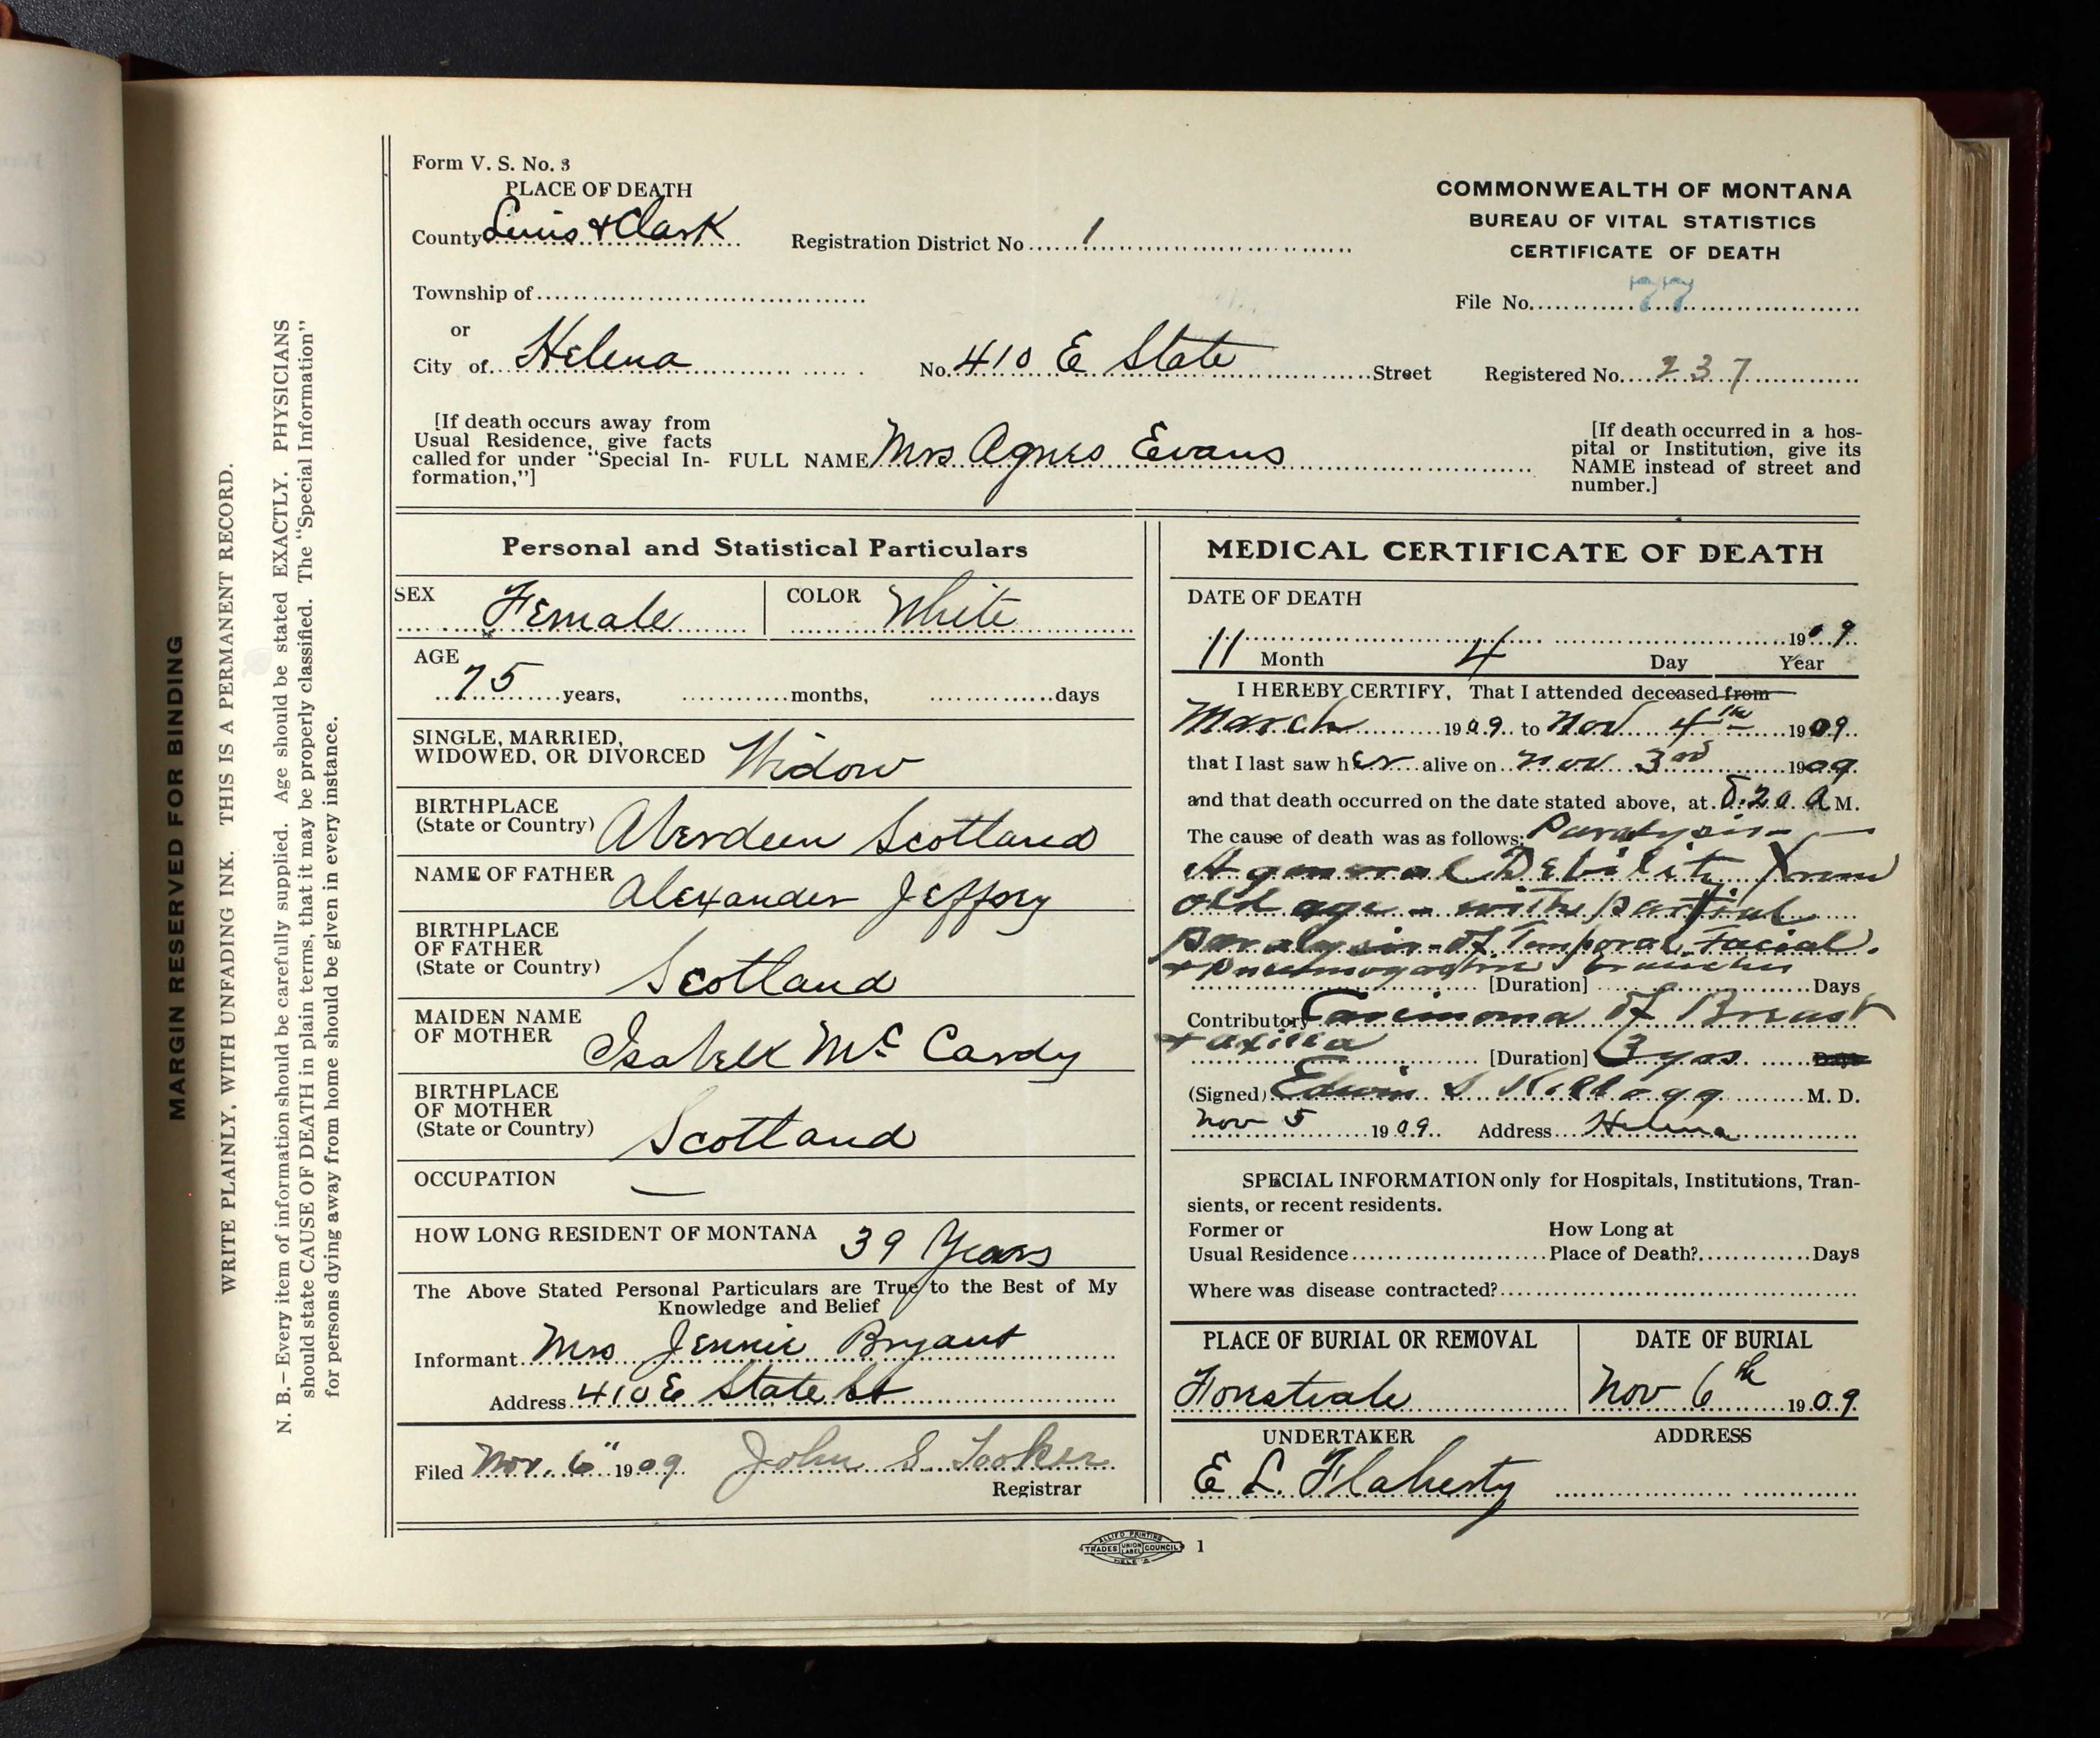 Form V. S. No. 3
PLACE OF DEATH
County Lewis & Clark
Registration District No. 1
Township of
or
City of Helena
No. 410 E State Street
COMMONWEALTH OF MONTANA
BUREAU OF VITAL STATISTICS
CERTIFICATE OF DEATH
File No. 77
Registered No. 237
[If death occurs away from
Usual Residence, give facts
called for under "Special In-
formation,"]
FULL NAME Mrs Agnes Evans
[If death occurred in a hos-
pital or Institution, give its
NAME instead of street and
number.]
MARGIN RESERVED FOR BINDING
WRITE PLAINLY, WITH UNFADING INK. THIS IS A PERMANENT RECORD.
N. B.—Every item of information should be carefully supplied. Age should be stated EXACTLY. PHYSICIANS
should state CAUSE OF DEATH in plain terms, that it may be properly classified. The "Special Information"
for persons dying away from home should be given in every instance.
Personal and Statistical Particulars
SEX Female
COLOR White
AGE
75 years, months, days
SINGLE, MARRIED,
WIDOWED, OR DIVORCED Widow
BIRTHPLACE
(State or Country) Aberdeen Scotland
NAME OF FATHER Alexander Jeffory
BIRTHPLACE
OF FATHER
(State or Country) Scotland
MAIDEN NAME
OF MOTHER Isabell McCardy
BIRTHPLACE
OF MOTHER
(State or Country) Scotland
OCCUPATION —
HOW LONG RESIDENT OF MONTANA 39 Years
The Above Stated Personal Particulars are True to the Best of My
Knowledge and Belief
Informant Mrs Jennie Bryant
Address 410 E State St
Filed Nov. 6" 1909 John S. Tooker
Registrar
MEDICAL CERTIFICATE OF DEATH
DATE OF DEATH
11 4 1909
Month Day Year
I HEREBY CERTIFY, That I attended deceased from
March 1909 to Nov 4th 1909
that I last saw her alive on Nov 3rd 1909
and that death occurred on the date stated above, at 8:20 A M.
The cause of death was as follows: Paralysis —
A general Debility from
old age - with partial
paralysis - of Temporal, Facial.
& pneumogastric branches
[Duration] Days
Contributory Carcinoma of Breast
& axilla
[Duration] 3 yrs Days
(Signed) Edwin S Kellogg M. D.
Nov 5 1909 Address Helena
SPECIAL INFORMATION only for Hospitals, Institutions, Tran-
sients, or recent residents.
Former or
Usual Residence
How Long at
Place of Death? Days
Where was disease contracted?
PLACE OF BURIAL OR REMOVAL
Forestvale
DATE OF BURIAL
Nov 6th 1909
UNDERTAKER
E L. Flaherty
ADDRESS
ALLIED PRINTING
TRADES UNION LABEL COUNCIL
HELENA
1